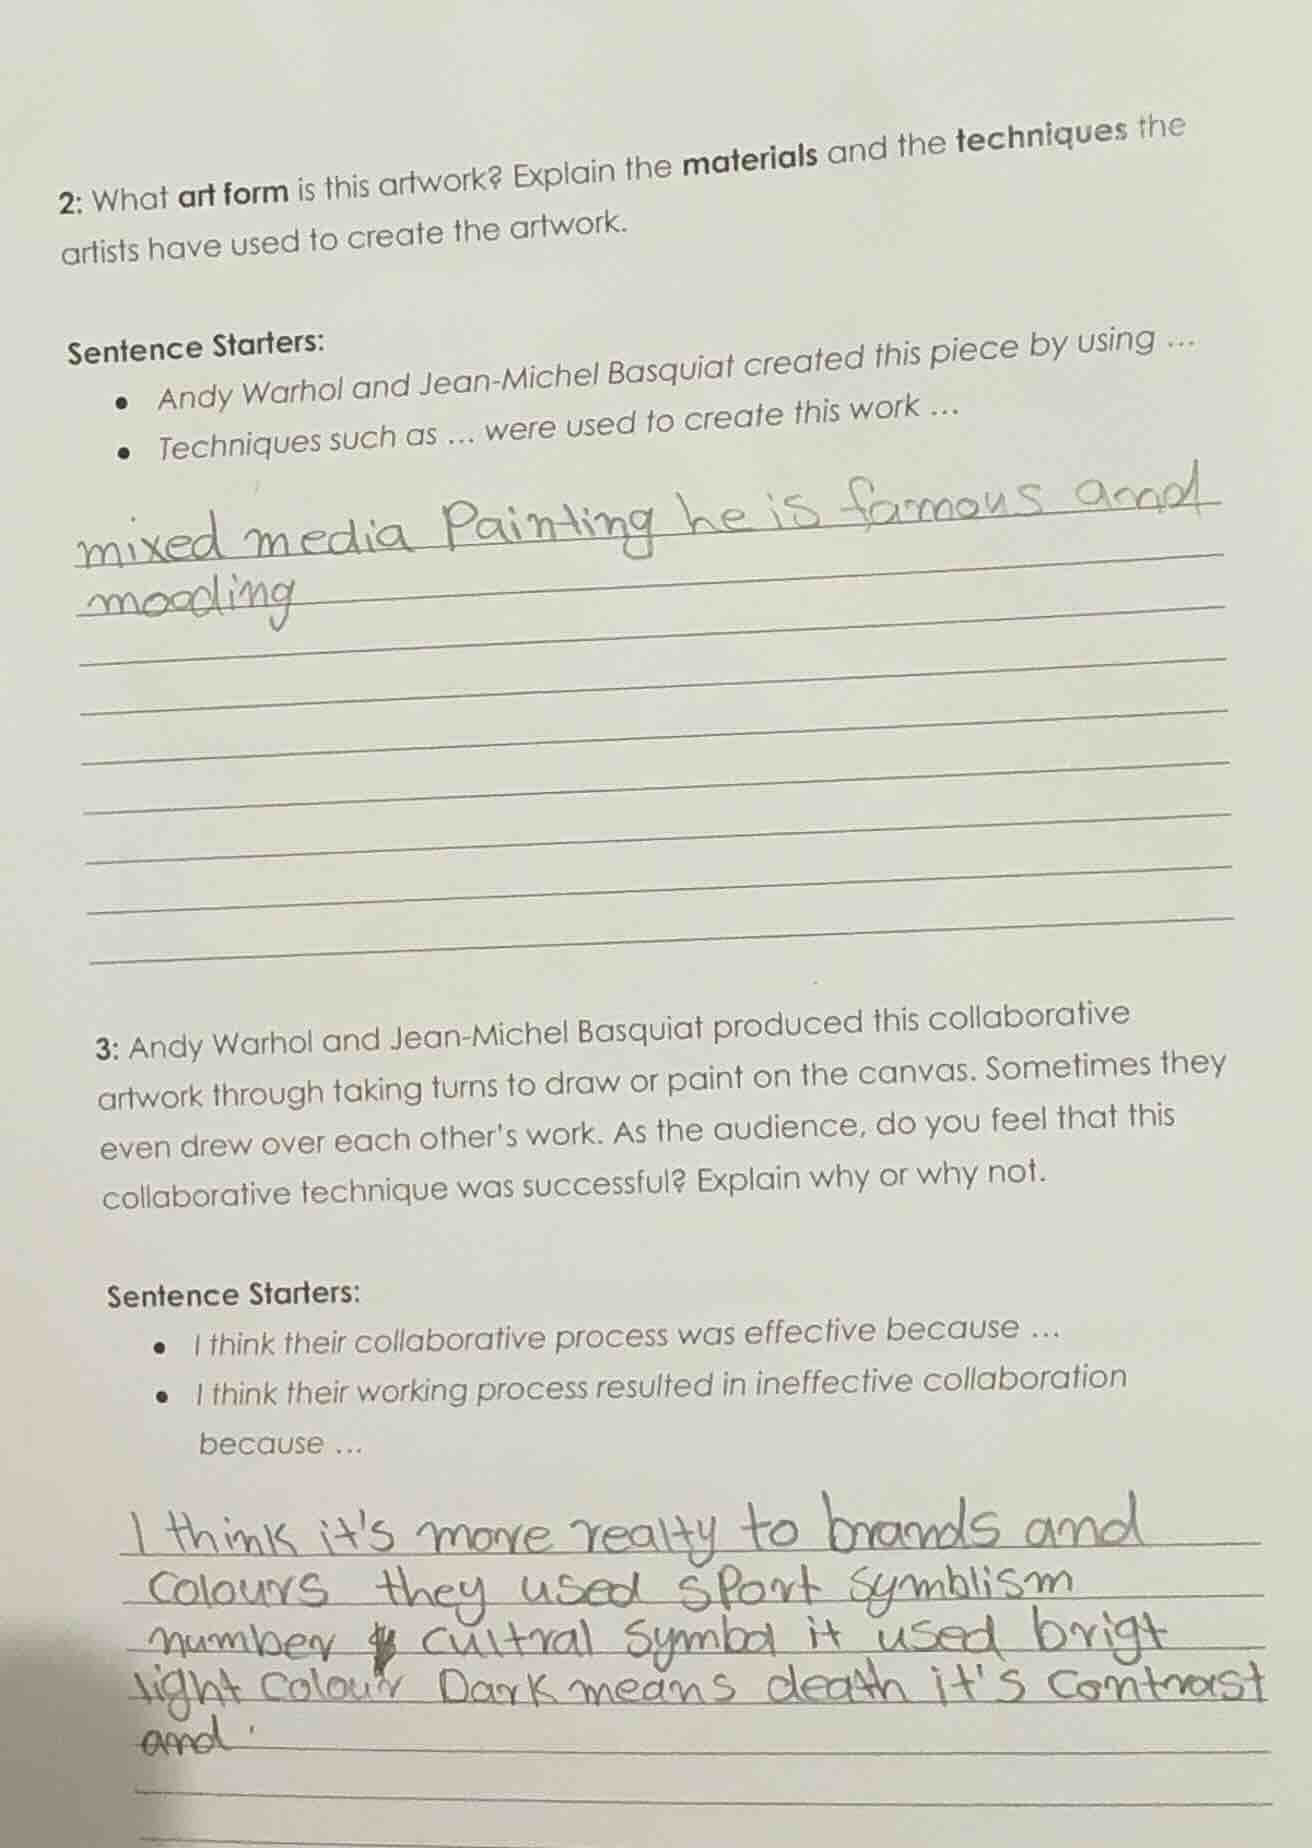 2: What art form is this artwork? Explain the materials and the techniques the
artists have used to create the artwork.
Sentence Starters:
• Andy Warhol and Jean-Michel Basquiat created this piece by using ...
• Techniques such as ... were used to create this work ...
mixed media Painting he is famous and
mooding
3: Andy Warhol and Jean-Michel Basquiat produced this collaborative
artwork through taking turns to draw or paint on the canvas. Sometimes they
even drew over each other's work. As the audience, do you feel that this
collaborative technique was successful? Explain why or why not.
Sentence Starters:
• I think their collaborative process was effective because ...
• I think their working process resulted in ineffective collaboration
because ...
I think it's more realty to brands and
colours they used sport symblism
number cultral symbol it used brigt
light colour Dark means death it's contrast
and .